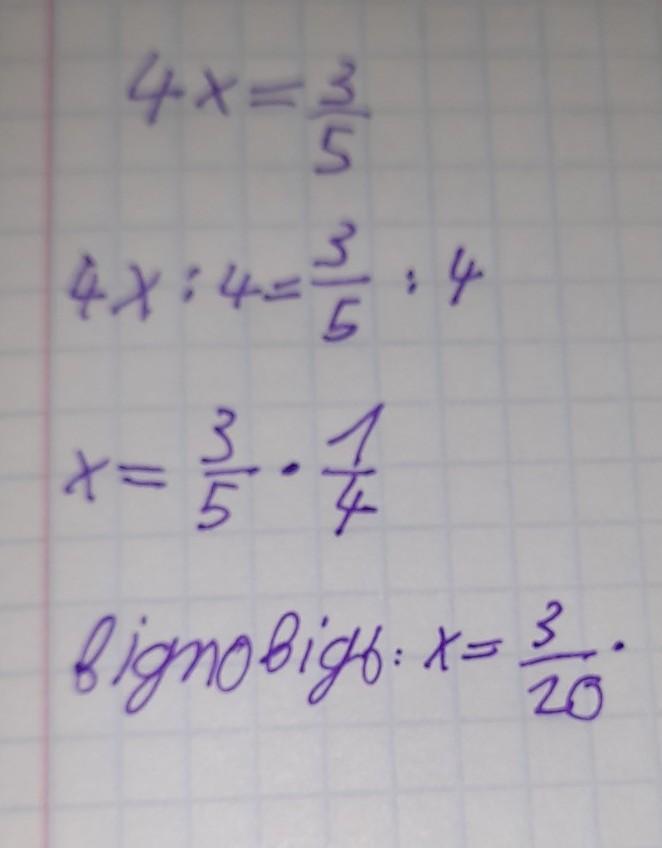 4x = 3/5
4x : 4 = 3/5 : 4
x = 3/5 · 1/4
відповідь: x = 3/20.